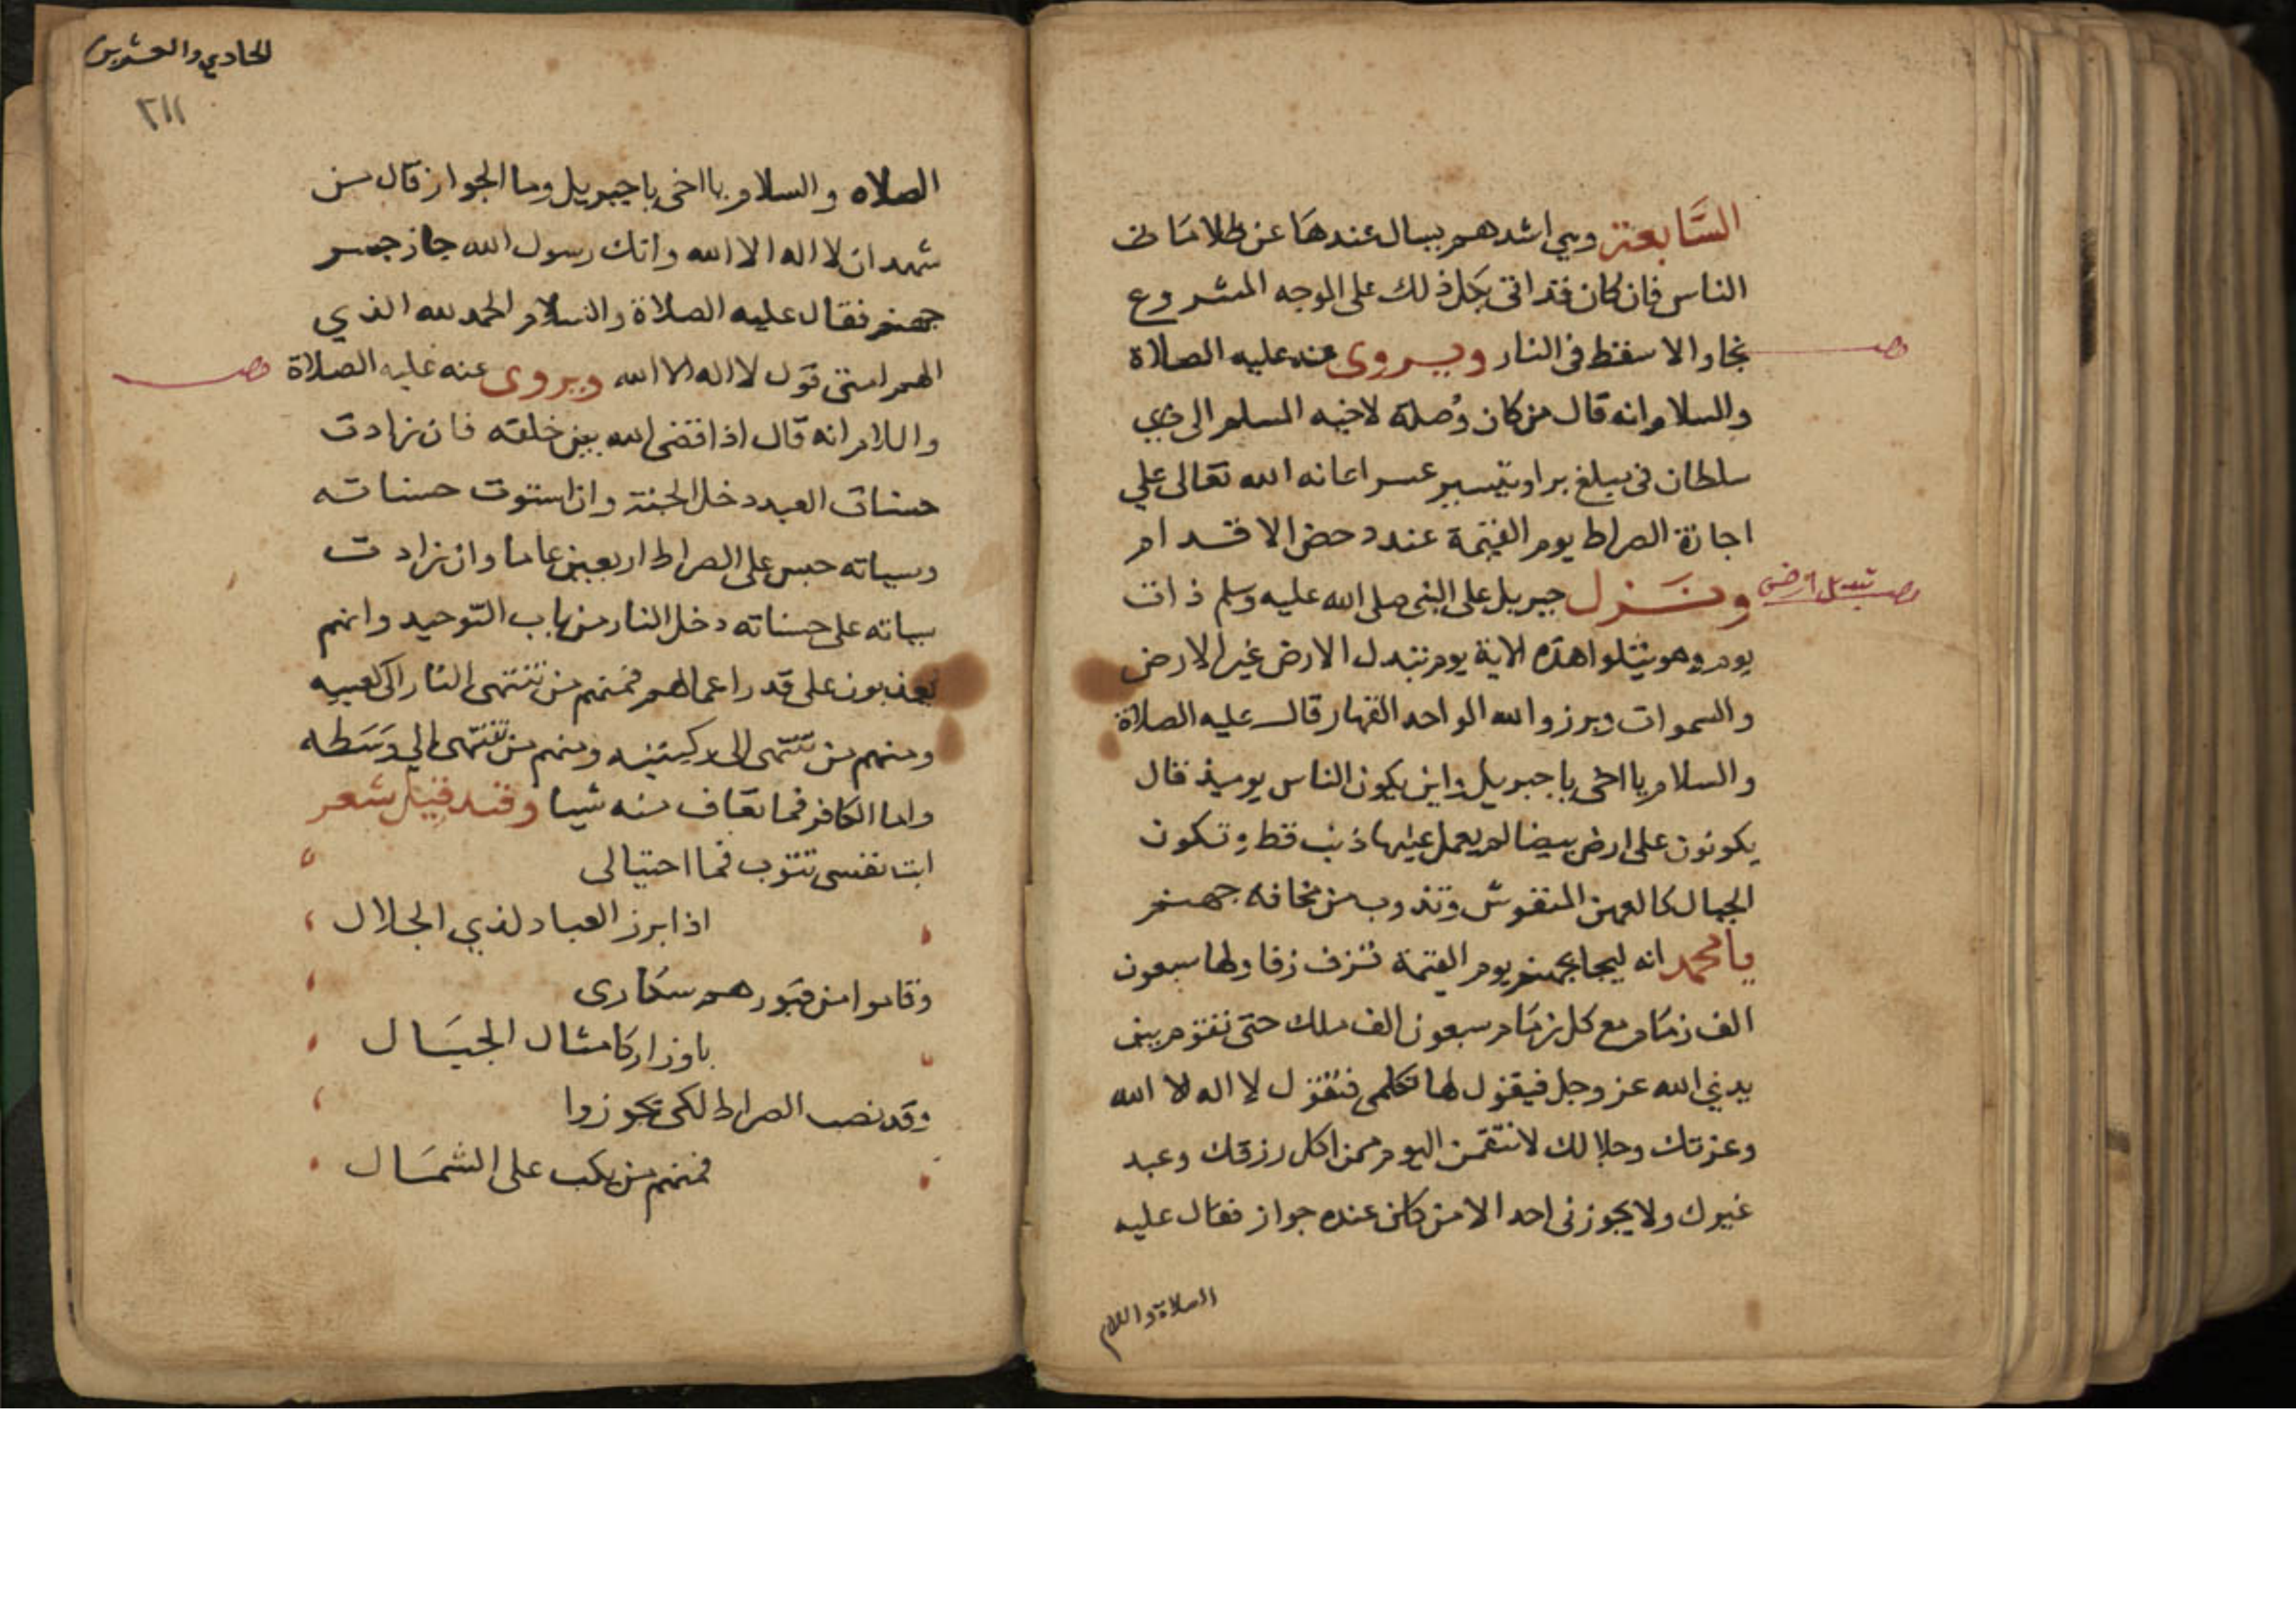 السَّابعة وهي اشدهم يسال عندها عن ظلامات
الناس فان كان قد اتى بكل ذلك على الوجه المشروع
نجا والا سقط في النار ويروى عنه عليه الصلاة
والسلام انه قال من كان وُصلة لاخيه المسلم الى ذي
سلطان في مبلغ بر او تيسير عسر اعانه الله تعالى علي
اجازة الصراط يوم القيمة عند دحض الاقدام
ونَزل جبريل على النبي صلى الله عليه وسلم ذات
يوم وهو يتلوا هذه الاية يوم تبدل الارض غير الارض
والسموات وبرزوا لله الواحد القهار قال عليه الصلاة
والسلام يا اخى يا جبريل واين يكون الناس يوميذ قال
يكونون على ارض بيضا لم يعمل عليها ذنب قط وتكون
الجبال كالعهن المنفوش وتذوب من مخافة جهنم
يا محمد انه ليجا بجهنم يوم القيمة تزف زفا ولها سبعون
الف زمام مع كل زمام سبعون الف ملك حتى تقوم بين
يدي الله عز وجل فيقول لها تكلمى فتقول لا اله الا الله
وعزتك وجلالك لانتقمن اليوم ممن اكل رزقك وعبد
غيرك ولا يجوزنى احد الا من كان عنده جواز فقال عليه
الصلاة واللام
مصـ
مصـ تبديل ارض
الحادي والعشرين
٢١١
الصلاه والسلام يا اخى يا جبريل وما الجواز قال من
شهد ان لا اله الا الله وانك رسول الله جاز جسر
جهنم فقال عليه الصلاة والسلام الحمد لله الذي
الهم امتى قول لا اله الا الله ويروى عنه عليه الصلاة
واللام انه قال اذا قضى الله بين خلقه فان زادت
حسنات العبد دخل الجنة وان استوت حسناته
وسياته حبس على الصراط اربعين عاما وان زادت
سياته على حسناته دخل النار من باب التوحيد وانهم
يعذبون على قدر اعمالهم فمنهم من تنتهى النار الى كعبيه
ومنهم من تنتهى الى ركبتيه ومنهم من تنتهى الي وَسَطه
واما الكافر فما تعاف منه شيا وقد قيل شعر
ابت نفسى تتوب فما احتيالى
اذا برز العباد لذي الجلال
وقاموا من قبورهم سكارى
باوزار كامثال الجبَال
وقد نصب الصراط لكى يجوزوا
فمنهم من يكب على الشمَال
مصـ